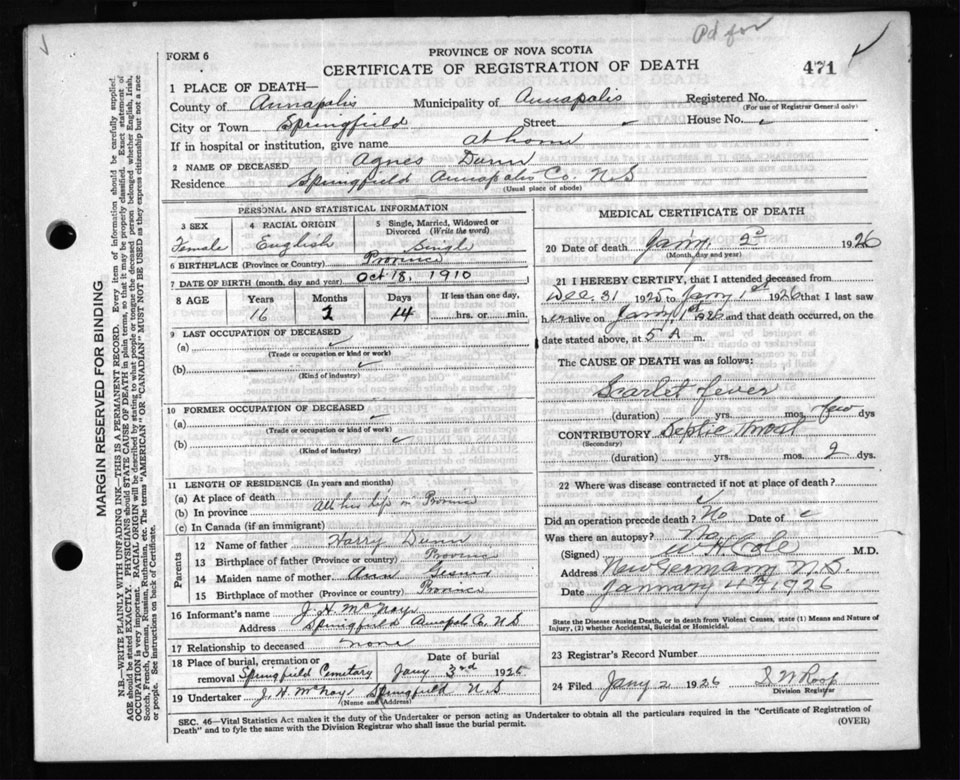 Pd for
FORM 6
PROVINCE OF NOVA SCOTIA
CERTIFICATE OF REGISTRATION OF DEATH
471
1 PLACE OF DEATH—
County of Annapolis Municipality of Annapolis Registered No.
(For use of Registrar General only)
City or Town Springfield Street House No.
If in hospital or institution, give name at home
2 NAME OF DECEASED Agnes Dunn
Residence Springfield Annapolis Co. N.S
(Usual place of abode)
PERSONAL AND STATISTICAL INFORMATION
3 SEX 4 RACIAL ORIGIN 5 Single, Married, Widowed or Divorced (Write the word)
Female English Single
6 BIRTHPLACE (Province or Country) Province
7 DATE OF BIRTH (month, day and year) Oct 18, 1910
8 AGE Years Months Days If less than one day,
16 2 14 hrs. or min.
9 LAST OCCUPATION OF DECEASED
(a)
(Trade or occupation or kind or work)
(b)
(Kind of industry)
10 FORMER OCCUPATION OF DECEASED
(a)
(Trade or occupation or kind of work)
(b)
(Kind of industry)
11 LENGTH OF RESIDENCE (In years and months)
(a) At place of death
(b) In province All his life in Province
(c) In Canada (if an immigrant)
Parents
12 Name of father Harry Dunn
13 Birthplace of father (Province or country) Province
14 Maiden name of mother Ann
15 Birthplace of mother (Province or Country) Province
16 Informant's name J. H. McNayr
Address Springfield Annapolis Co. N S
17 Relationship to deceased none
18 Place of burial, cremation or removal Springfield Cemetary Date of burial Jany 3rd 1926
19 Undertaker J. H. McNayr Springfield N S
(Name and Address)
MEDICAL CERTIFICATE OF DEATH
20 Date of death Jany. 2d 1926
(Month, day and year)
21 I HEREBY CERTIFY, that I attended deceased from
Dec. 31 1925 to Jany 1st 1926 that I last saw
her alive on Jany 1st 1926 and that death occurred, on
date stated above, at 5 A m.
The CAUSE OF DEATH was as follows:
Scarlet fever
(duration) yrs. mos. few dys
CONTRIBUTORY Septic throat
(Secondary)
(duration) yrs. mos. 2 dys.
22 Where was disease contracted if not at place of death?
Did an operation precede death? No Date of
Was there an autopsy? No
(Signed) W H Cole M.D.
Address New Germany N.S.
Date January 4th, 1926
State the Disease causing Death, or in death from Violent Causes, state (1) Means and Nature of Injury, (2) whether Accidental, Suicidal or Homicidal.
23 Registrar's Record Number
24 Filed Jany 2 1926 S W Roop
Division Registrar
SEC. 46—Vital Statistics Act makes it the duty of the Undertaker or person acting as Undertaker to obtain all the particulars required in the "Certificate of Registration of Death" and to fyle the same with the Division Registrar who shall issue the burial permit.
(OVER)
MARGIN RESERVED FOR BINDING
N.B.—WRITE PLAINLY WITH UNFADING INK—THIS IS A PERMANENT RECORD. Every item of information should be carefully supplied.
AGE should be stated EXACTLY. PHYSICIANS should STATE CAUSE OF DEATH in plain terms, so that it may be properly classified. Exact statement of
OCCUPATION is very important. RACIAL ORIGIN will be described by stating to what people or tongue the deceased person belonged whether English, Irish,
Scotch, French, German, Russian, Ruthenian, etc. The terms "AMERICAN" OR "CANADIAN" MUST NOT BE USED as they express citizenship but not a race
or people. See instructions on back of Certificate.